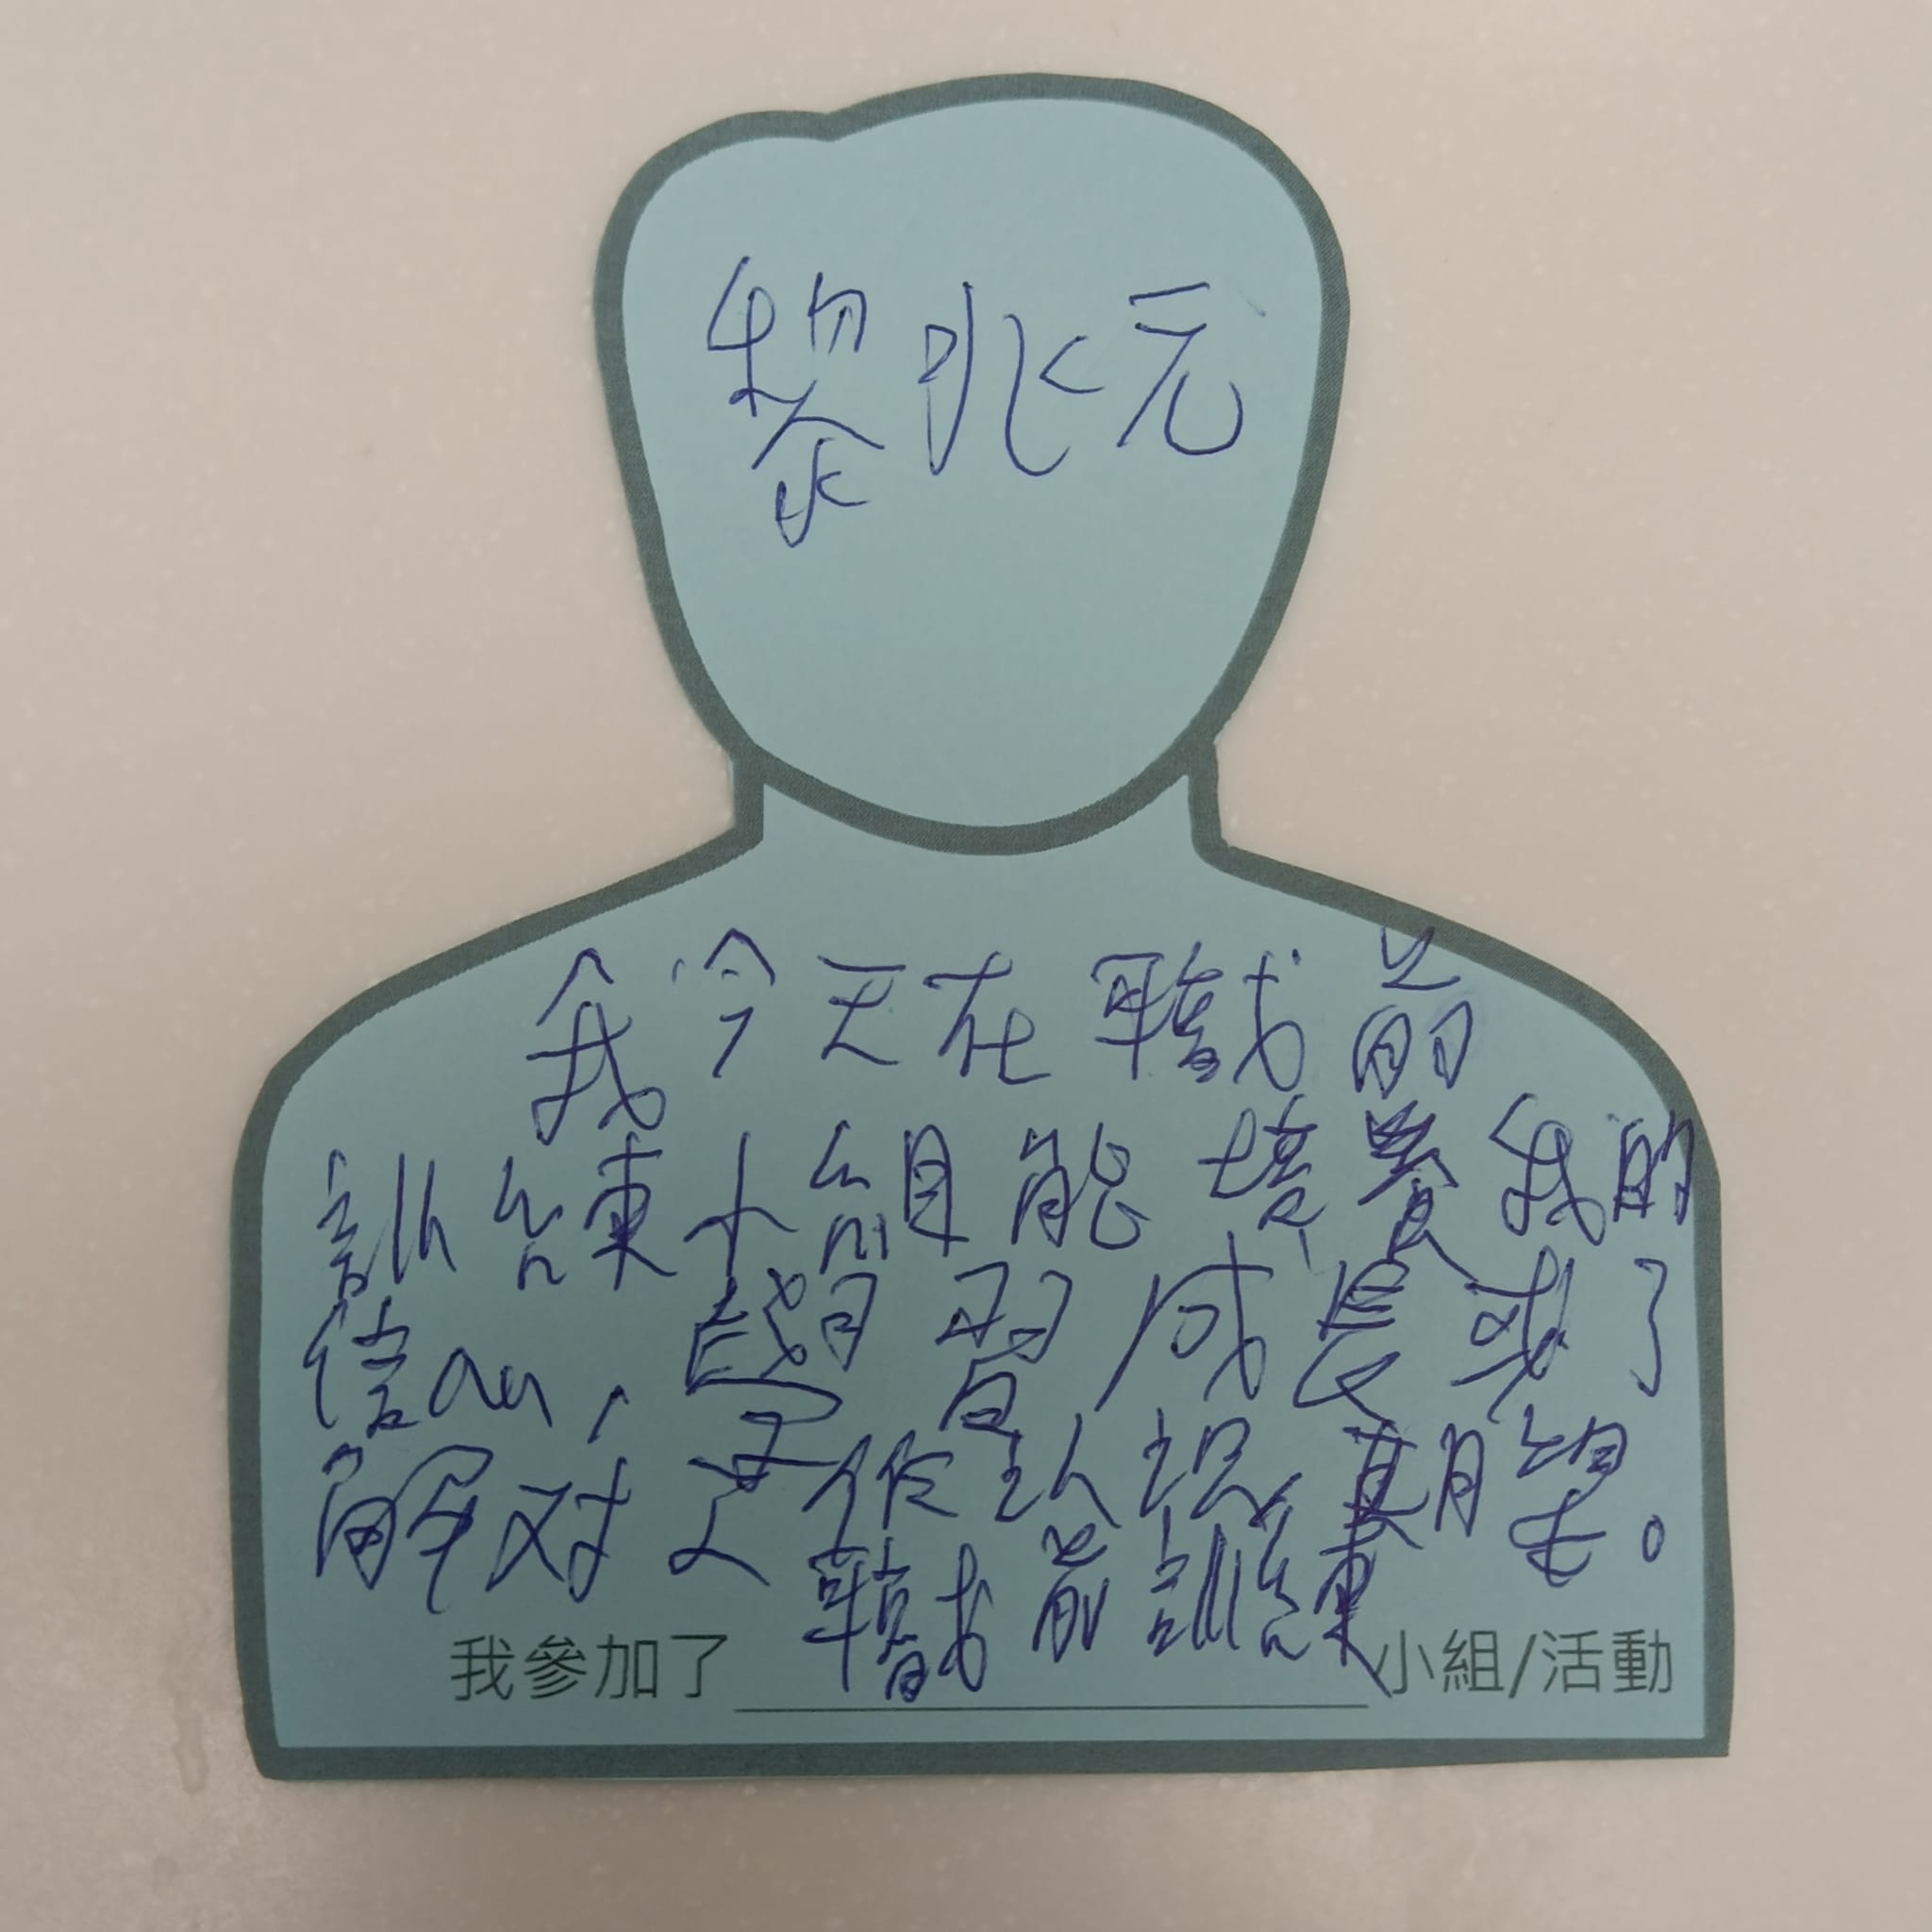 黎兆元
我今天在職前
訓練小組能培養我的
信心，學習成長或了
解对工作以現期望。
我參加了職前訓練小組/活動